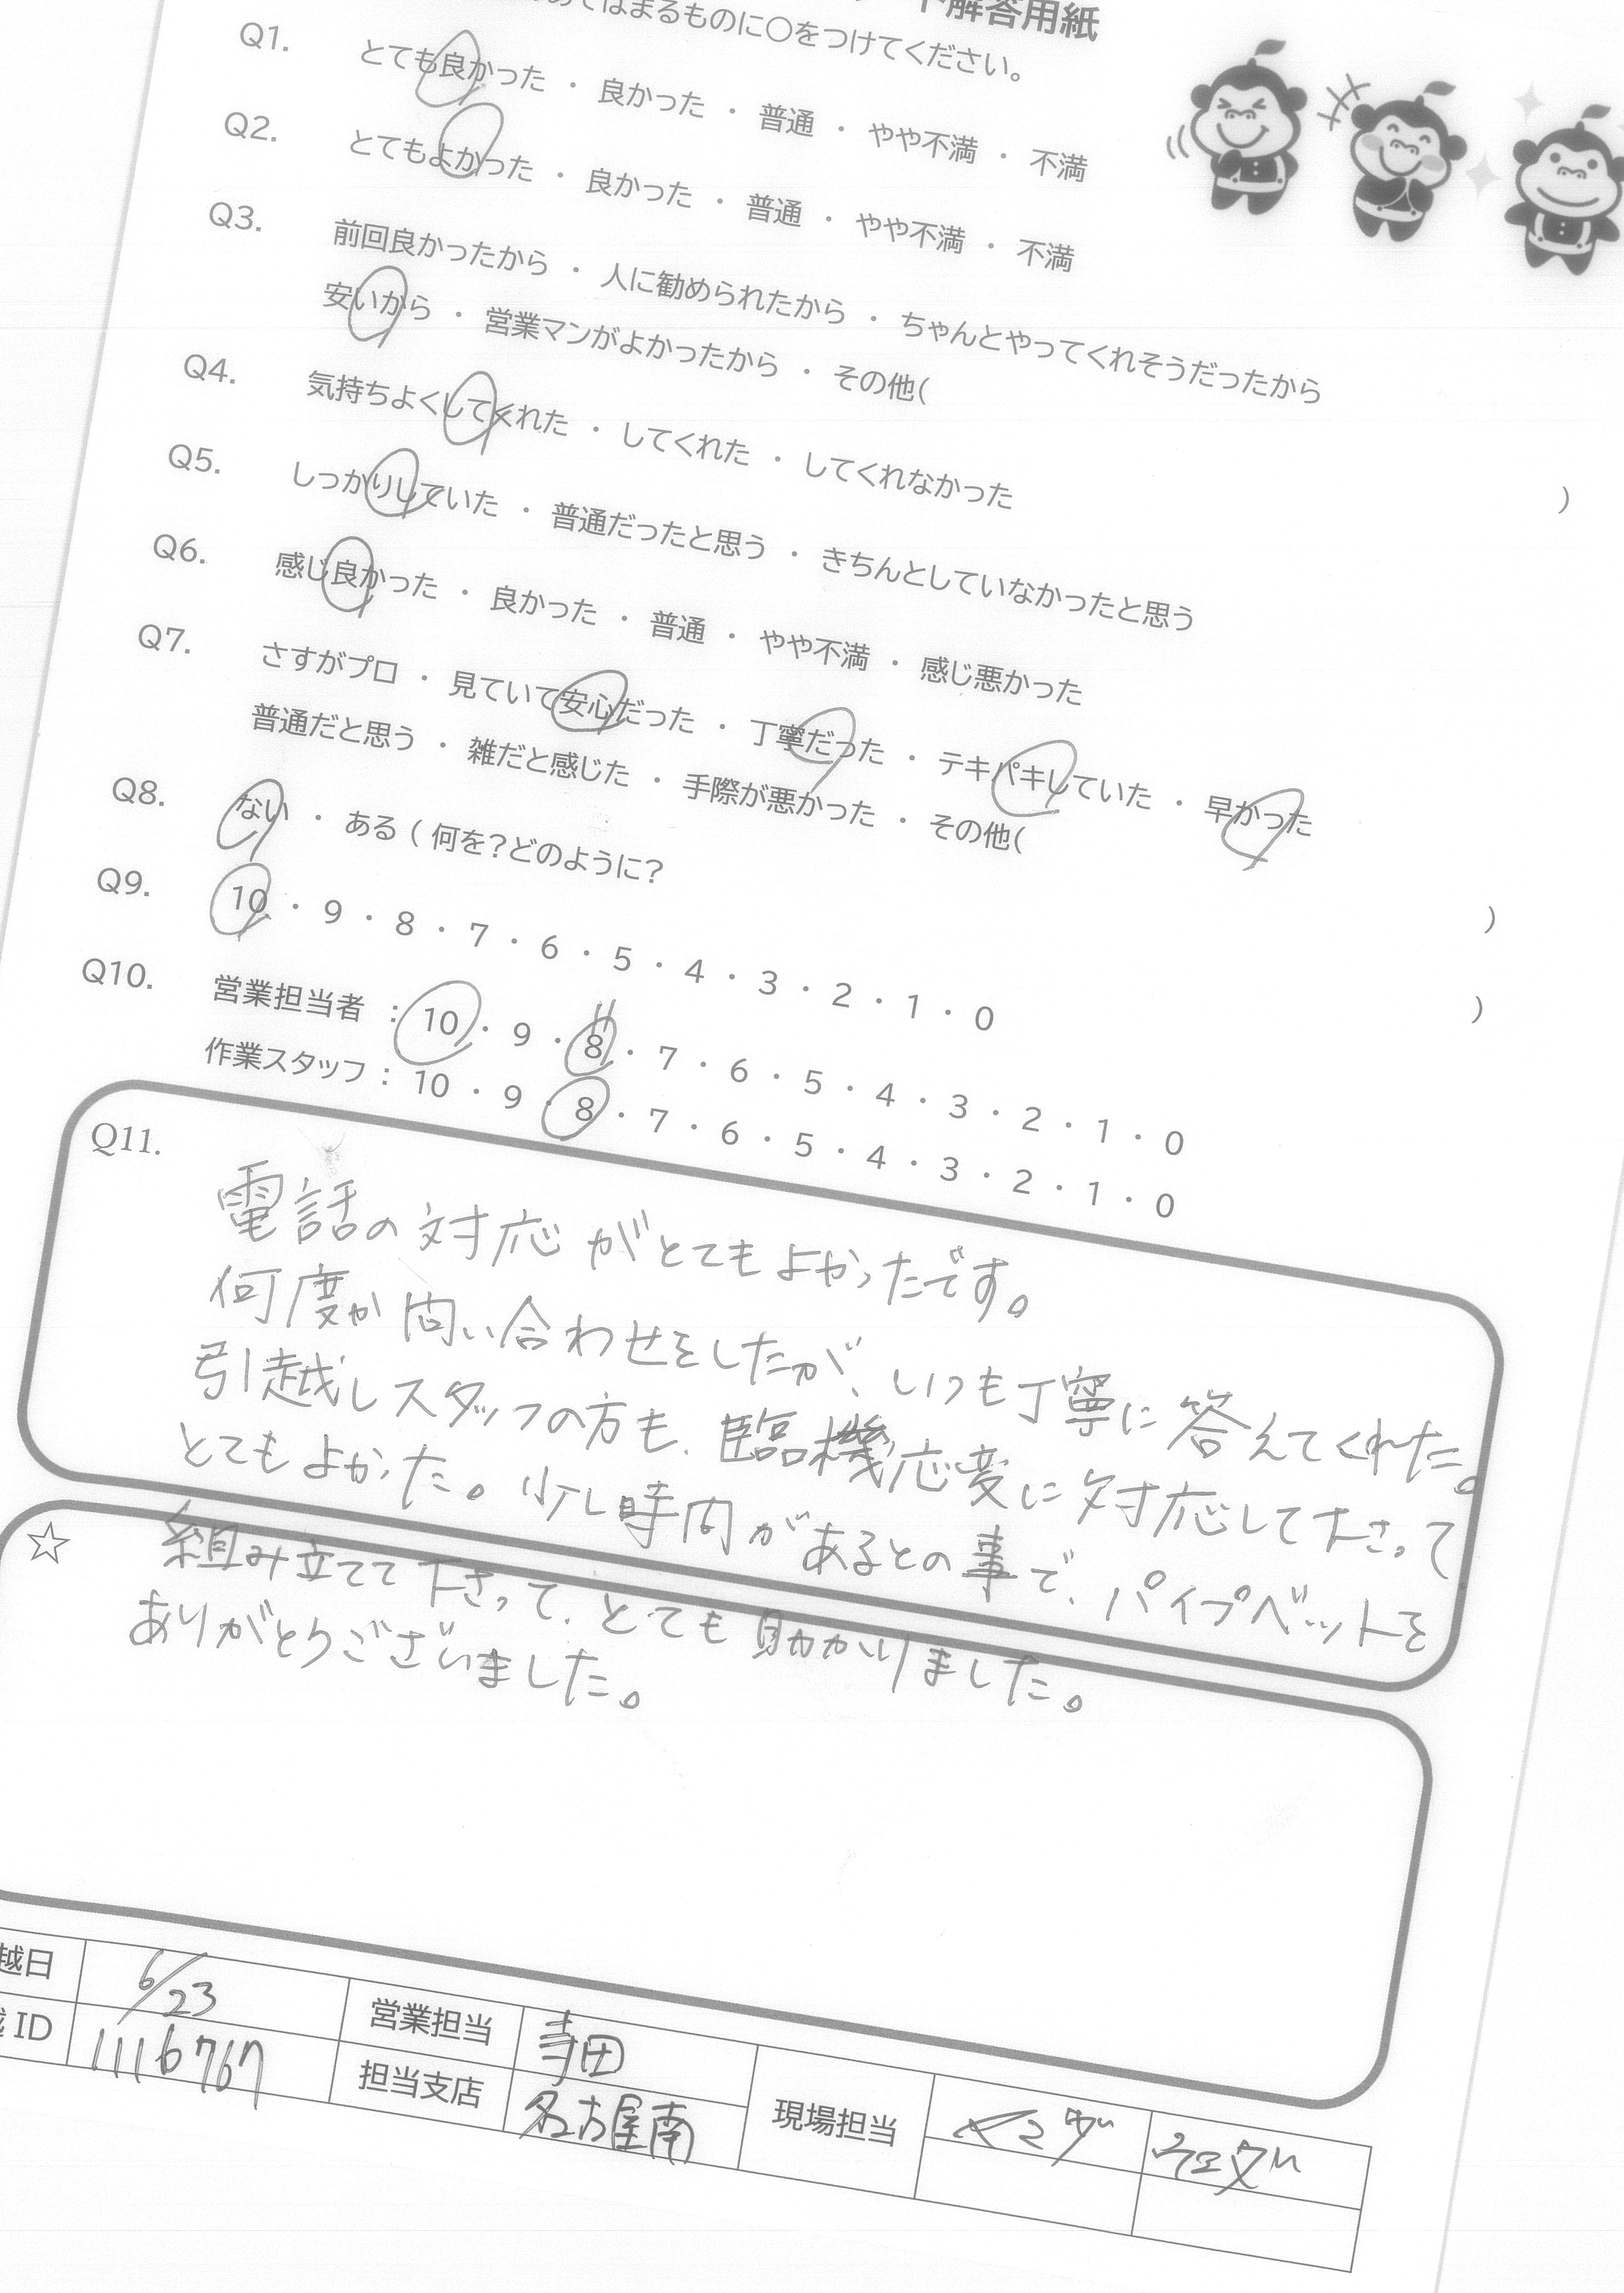 解答用紙
はまるものに○をつけてください。
Q1. とても良かった ・ 良かった ・ 普通 ・ やや不満 ・ 不満
Q2. とてもよかった ・ 良かった ・ 普通 ・ やや不満 ・ 不満
Q3. 前回良かったから ・ 人に勧められたから ・ ちゃんとやってくれそうだったから
安いから ・ 営業マンがよかったから ・ その他( )
Q4. 気持ちよくしてくれた ・ してくれた ・ してくれなかった
Q5. しっかりしていた ・ 普通だったと思う ・ きちんとしていなかったと思う
Q6. 感じ良かった ・ 良かった ・ 普通 ・ やや不満 ・ 感じ悪かった
Q7. さすがプロ ・ 見ていて安心だった ・ 丁寧だった ・ テキパキしていた ・ 早かった
普通だと思う ・ 雑だと感じた ・ 手際が悪かった ・ その他( )
Q8. ない ・ ある ( 何を?どのように? )
Q9. 10 ・ 9 ・ 8 ・ 7 ・ 6 ・ 5 ・ 4 ・ 3 ・ 2 ・ 1 ・ 0
Q10. 営業担当者 : 10 ・ 9 ・ 8 ・ 7 ・ 6 ・ 5 ・ 4 ・ 3 ・ 2 ・ 1 ・ 0
作業スタッフ : 10 ・ 9 ・ 8 ・ 7 ・ 6 ・ 5 ・ 4 ・ 3 ・ 2 ・ 1 ・ 0
Q11.
電話の対応がとてもよかったです。
何度か問い合わせをしたが、いつも丁寧に答えてくれた。
引越しスタッフの方も、臨機応変に対応して下さって
とてもよかった。少し時間があるとの事で、パイプベットを
☆ 組み立てて下さって、とても助かりました。
ありがとうございました。
越日 6/23 営業担当 寺田
ID 1116767 担当支店 名古屋南 現場担当